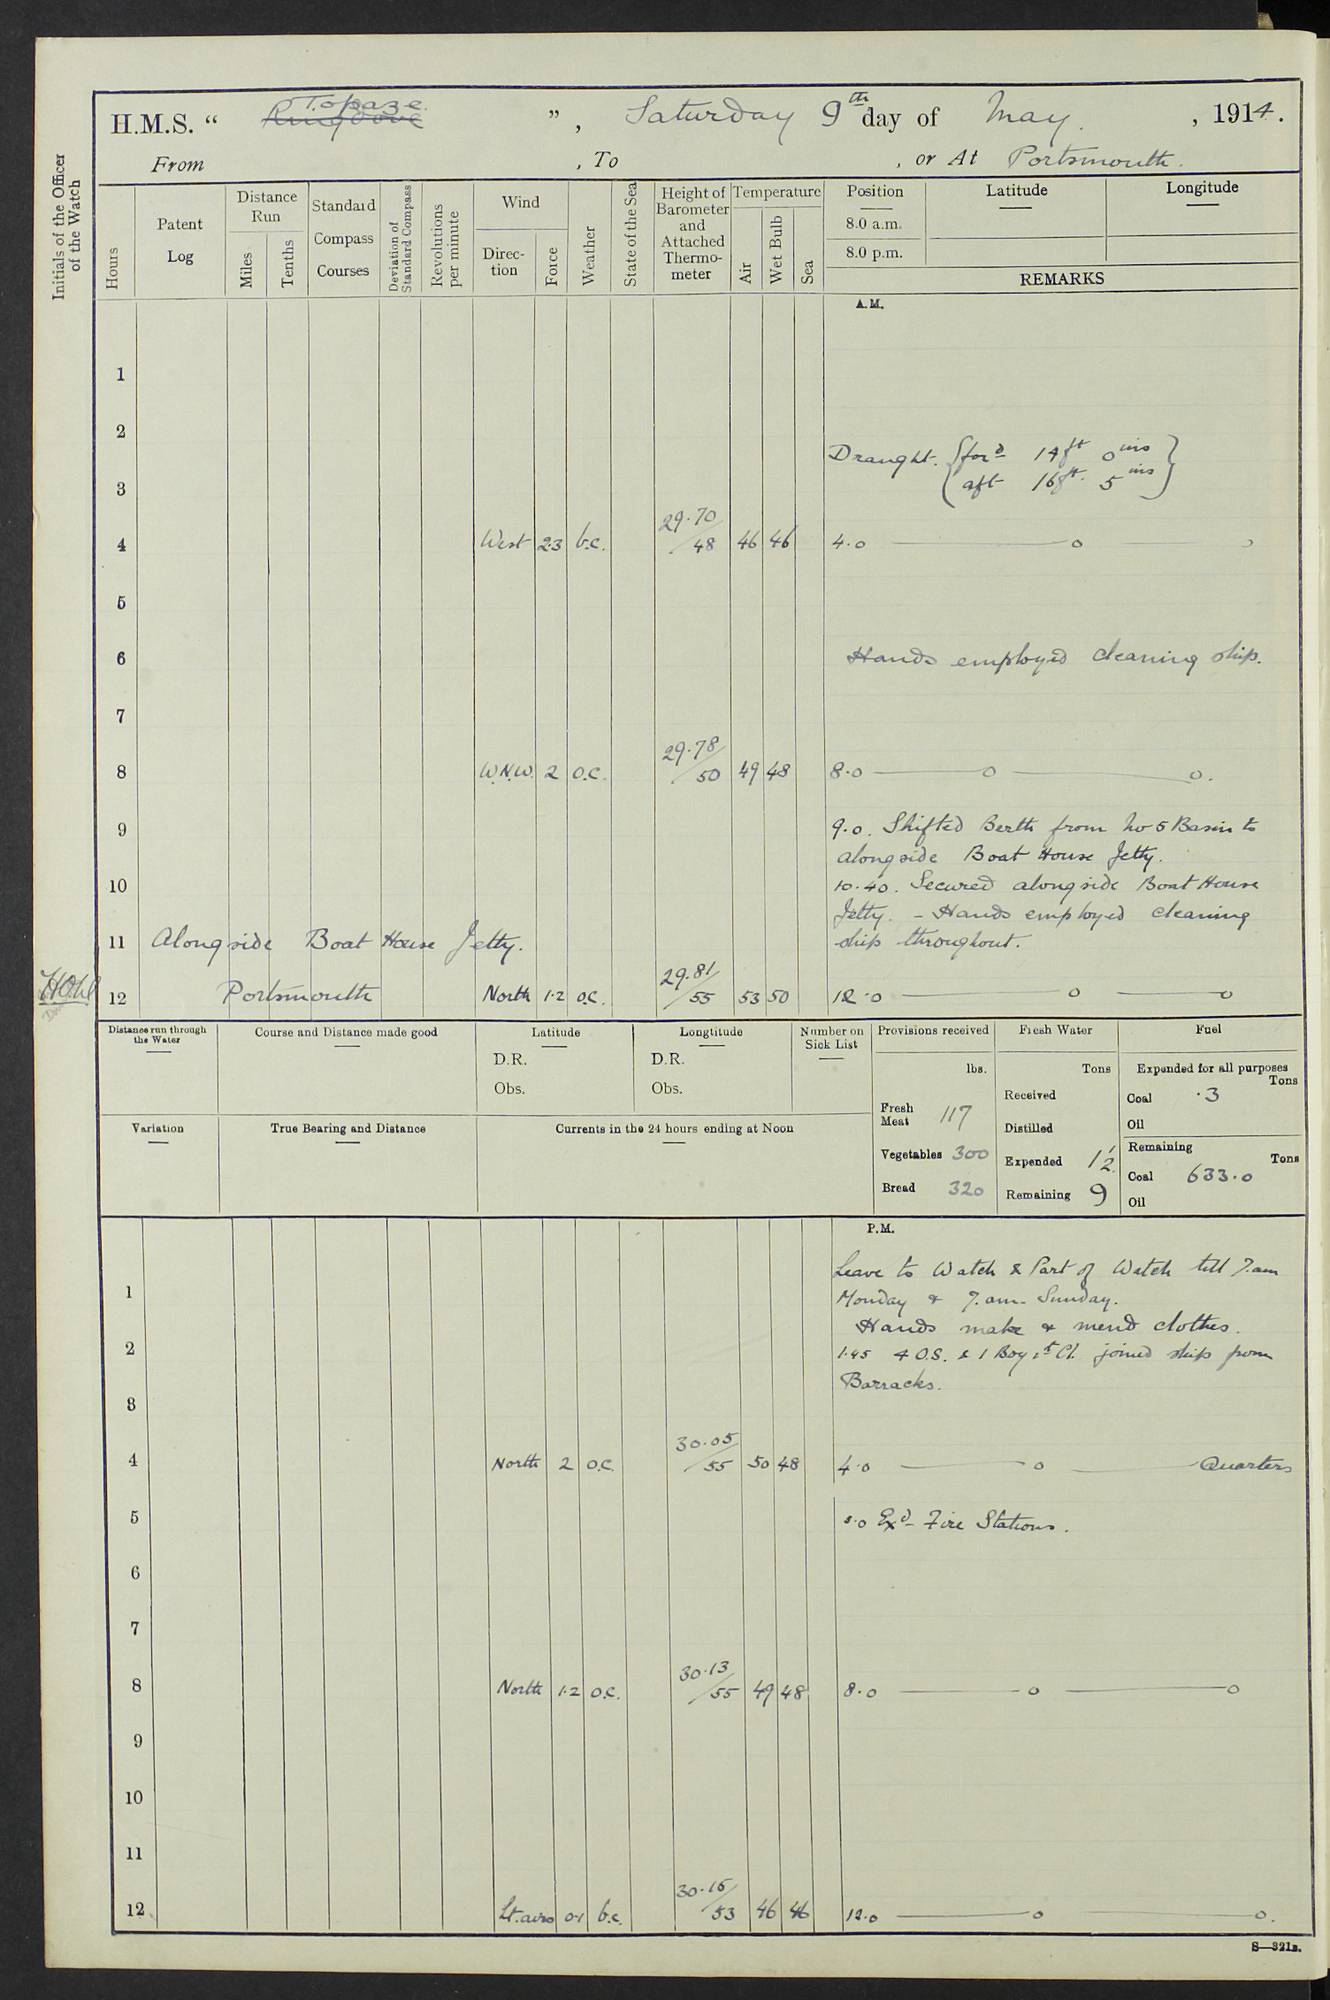 H.M.S. " Ringdove Topaze. ", Saturday 9th day of May. , 1914.
From , To , or At Portsmouth.
Initials of the Officer of the Watch
Hours
Patent Log
Distance Run
Miles
Tenths
Standard Compass Courses
Deviation of Standard Compass
Revolutions per minute
Wind
Direc-tion
Force
Weather
State of the Sea
Height of Barometer and Attached Thermo-meter
Temperature
Air
Wet Bulb
Sea
Position Latitude Longitude
8.0 a.m.
8.0 p.m.
REMARKS
A.M.
1
2
Draught. { for'd 14ft 0ins }
3
{ aft 16ft. 5ins }
4 West 2.3 b.c. 29.70/48 46 46 4.0
5
6 Hands employed cleaning ship.
7
8 W.N.W. 2 o.c. 29.78/50 49 48 8.0
9 9.0. Shifted Berth from No 5 Basin to
alongside Boat House Jetty.
10 10.40. Secured alongside Boat House
Jetty. - Hands employed cleaning
11 Alongside Boat House Jetty. ship throughout.
12 Portsmouth North 1.2 o.c. 29.81/55 53 50 12.0
Distance run through the Water
Course and Distance made good
Latitude
D.R.
Obs.
Longtitude
D.R.
Obs.
Number on Sick List
Provisions received
lbs.
Fresh Meat 117
Vegetables 300
Bread 320
Fresh Water
Tons
Received
Distilled
Expended 1½
Remaining 9
Fuel
Expended for all purposes
Tons
Coal .3
Oil
Remaining
Tons
Coal 633.0
Oil
Variation
True Bearing and Distance
Currents in the 24 hours ending at Noon
P.M.
Leave to Watch & Part of Watch till 7.am
1 Monday & 7.am. Sunday.
Hands make & mend clothes.
2 1.45 4 O.S. & 1 Boy 1st Cl. joined ship from
Barracks.
3
4 North 2 o.c. 30.05/55 50 48 4.0 Quarters
5 5.0 Exd Fire Stations.
6
7
8 North 1.2 o.c. 30.13/55 49 48 8.0
9
10
11
12 Lt. airs 0.1 b.c. 30.15/53 46 46 12.0
S—321B.